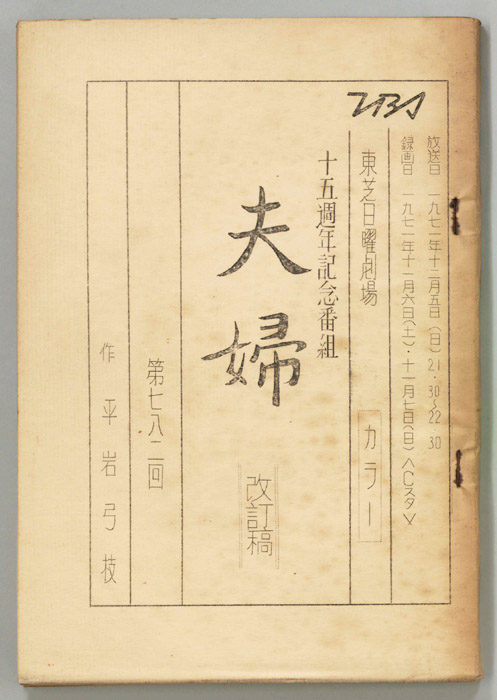 TBS
放送日 一九七一年十二月五日(日)21・30~22・30
録画日 一九七一年十一月六日(土)・十一月七日(日)<Cスタ>
東芝日曜劇場 カラー
十五週年記念番組
夫婦
改訂稿
第七八二回
作 平岩弓枝